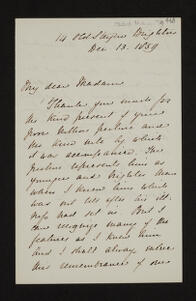 14 Old Steyne Brighton
Dec 13. 1889
My dear Madam
Thank you much for
the kind present of your
from picture and
the kind note by which
it was accompanied. The
picture represents him as
younger and brighter than
when I knew him which
was not till after his ill-
ness had set in. But I
can recognize many of the
features as I knew him
and I shall always value
this remembrance of one